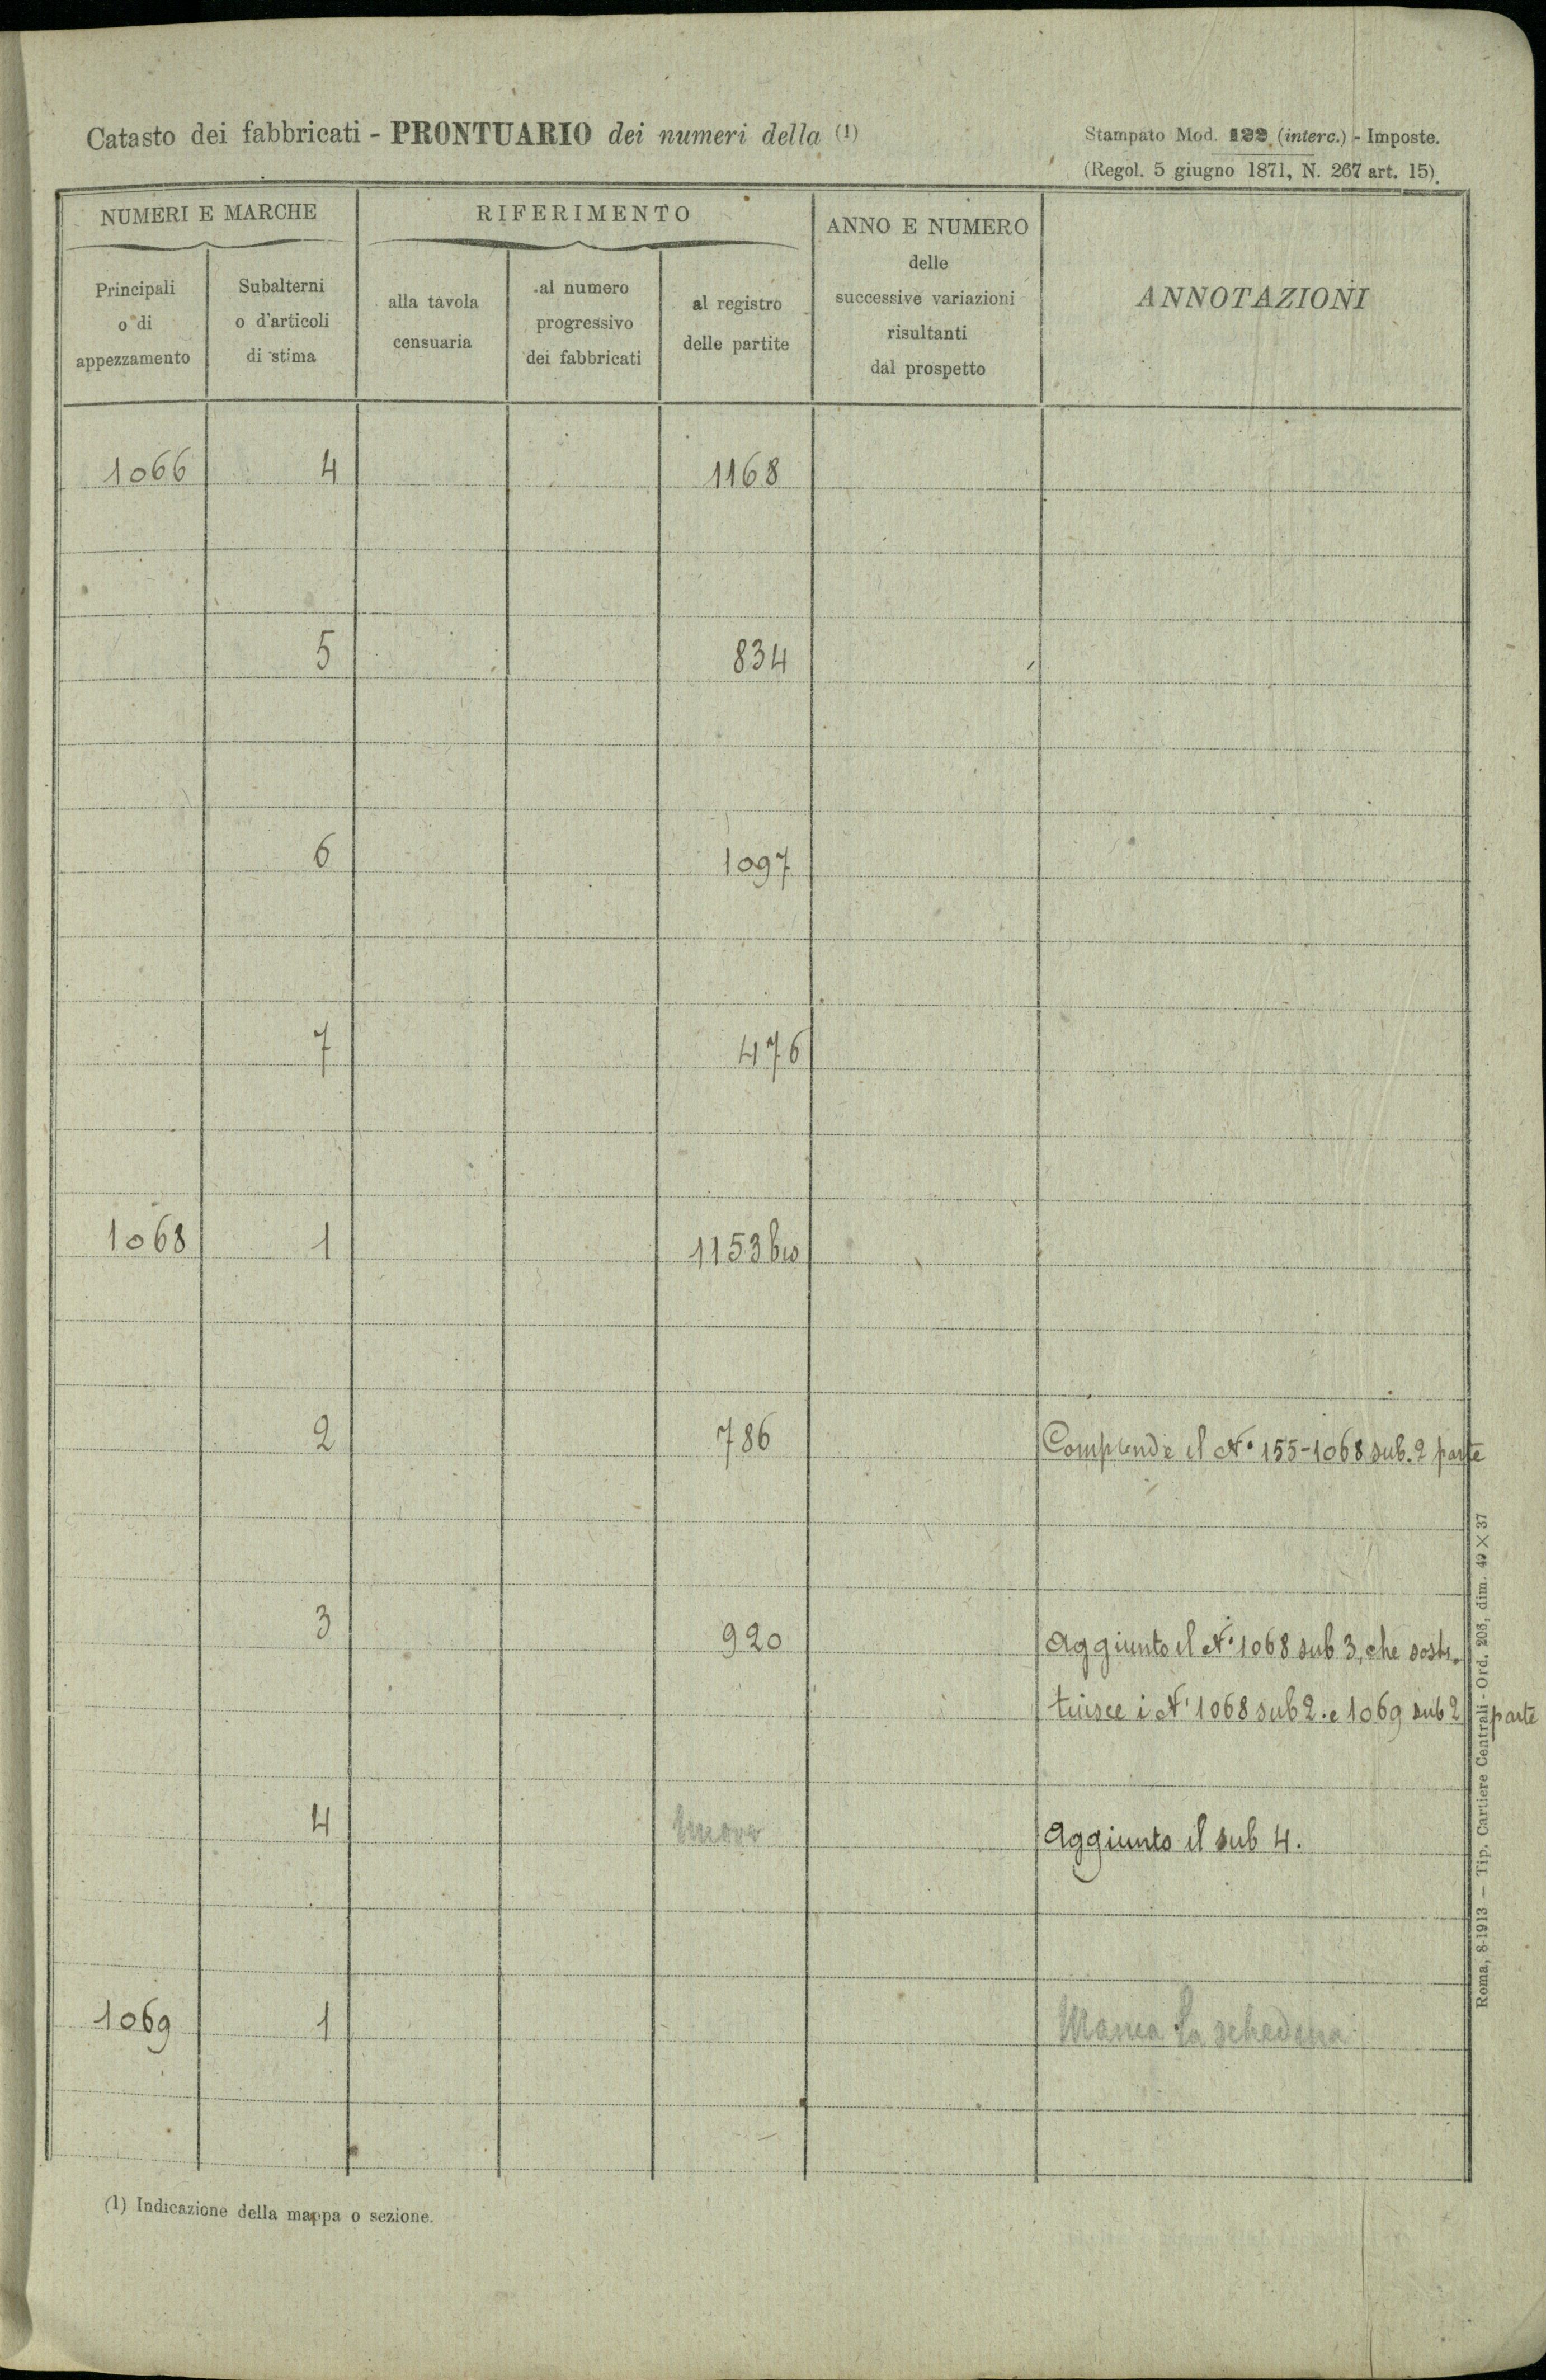 Catasto dei fabbricati - PRONTUARIO dei numeri della (1)
Stampato Mod. 122 (interc.) - Imposte.
(Regol. 5 giugno 1871, N. 267 art. 15).
NUMERI E MARCHE
RIFERIMENTO
ANNO E NUMERO
delle
successive variazioni
risultanti
dal prospetto
ANNOTAZIONI
Principali
o di
appezzamento
Subalterni
o d'articoli
di stima
alla tavola
censuaria
al numero
progressivo
dei fabbricati
al registro
delle partite
1066 4 1168
5 834
6 1097
7 476
1068 1 1153 bis
2 786 Comprende il N° 155-1068 sub. 2 parte
3 920 Aggiunto il N° 1068 sub 3, che sosti-
tuisce i N¹ 1068 sub 2. e 1069 sub 2 parte
4 Aggiunto il sub 4.
1069 1 Manca la schedina
(1) Indicazione della mappa o sezione.
Roma, 8-1913 — Tip. Cartiere Centrali - Ord. 203, dim. 49 × 37